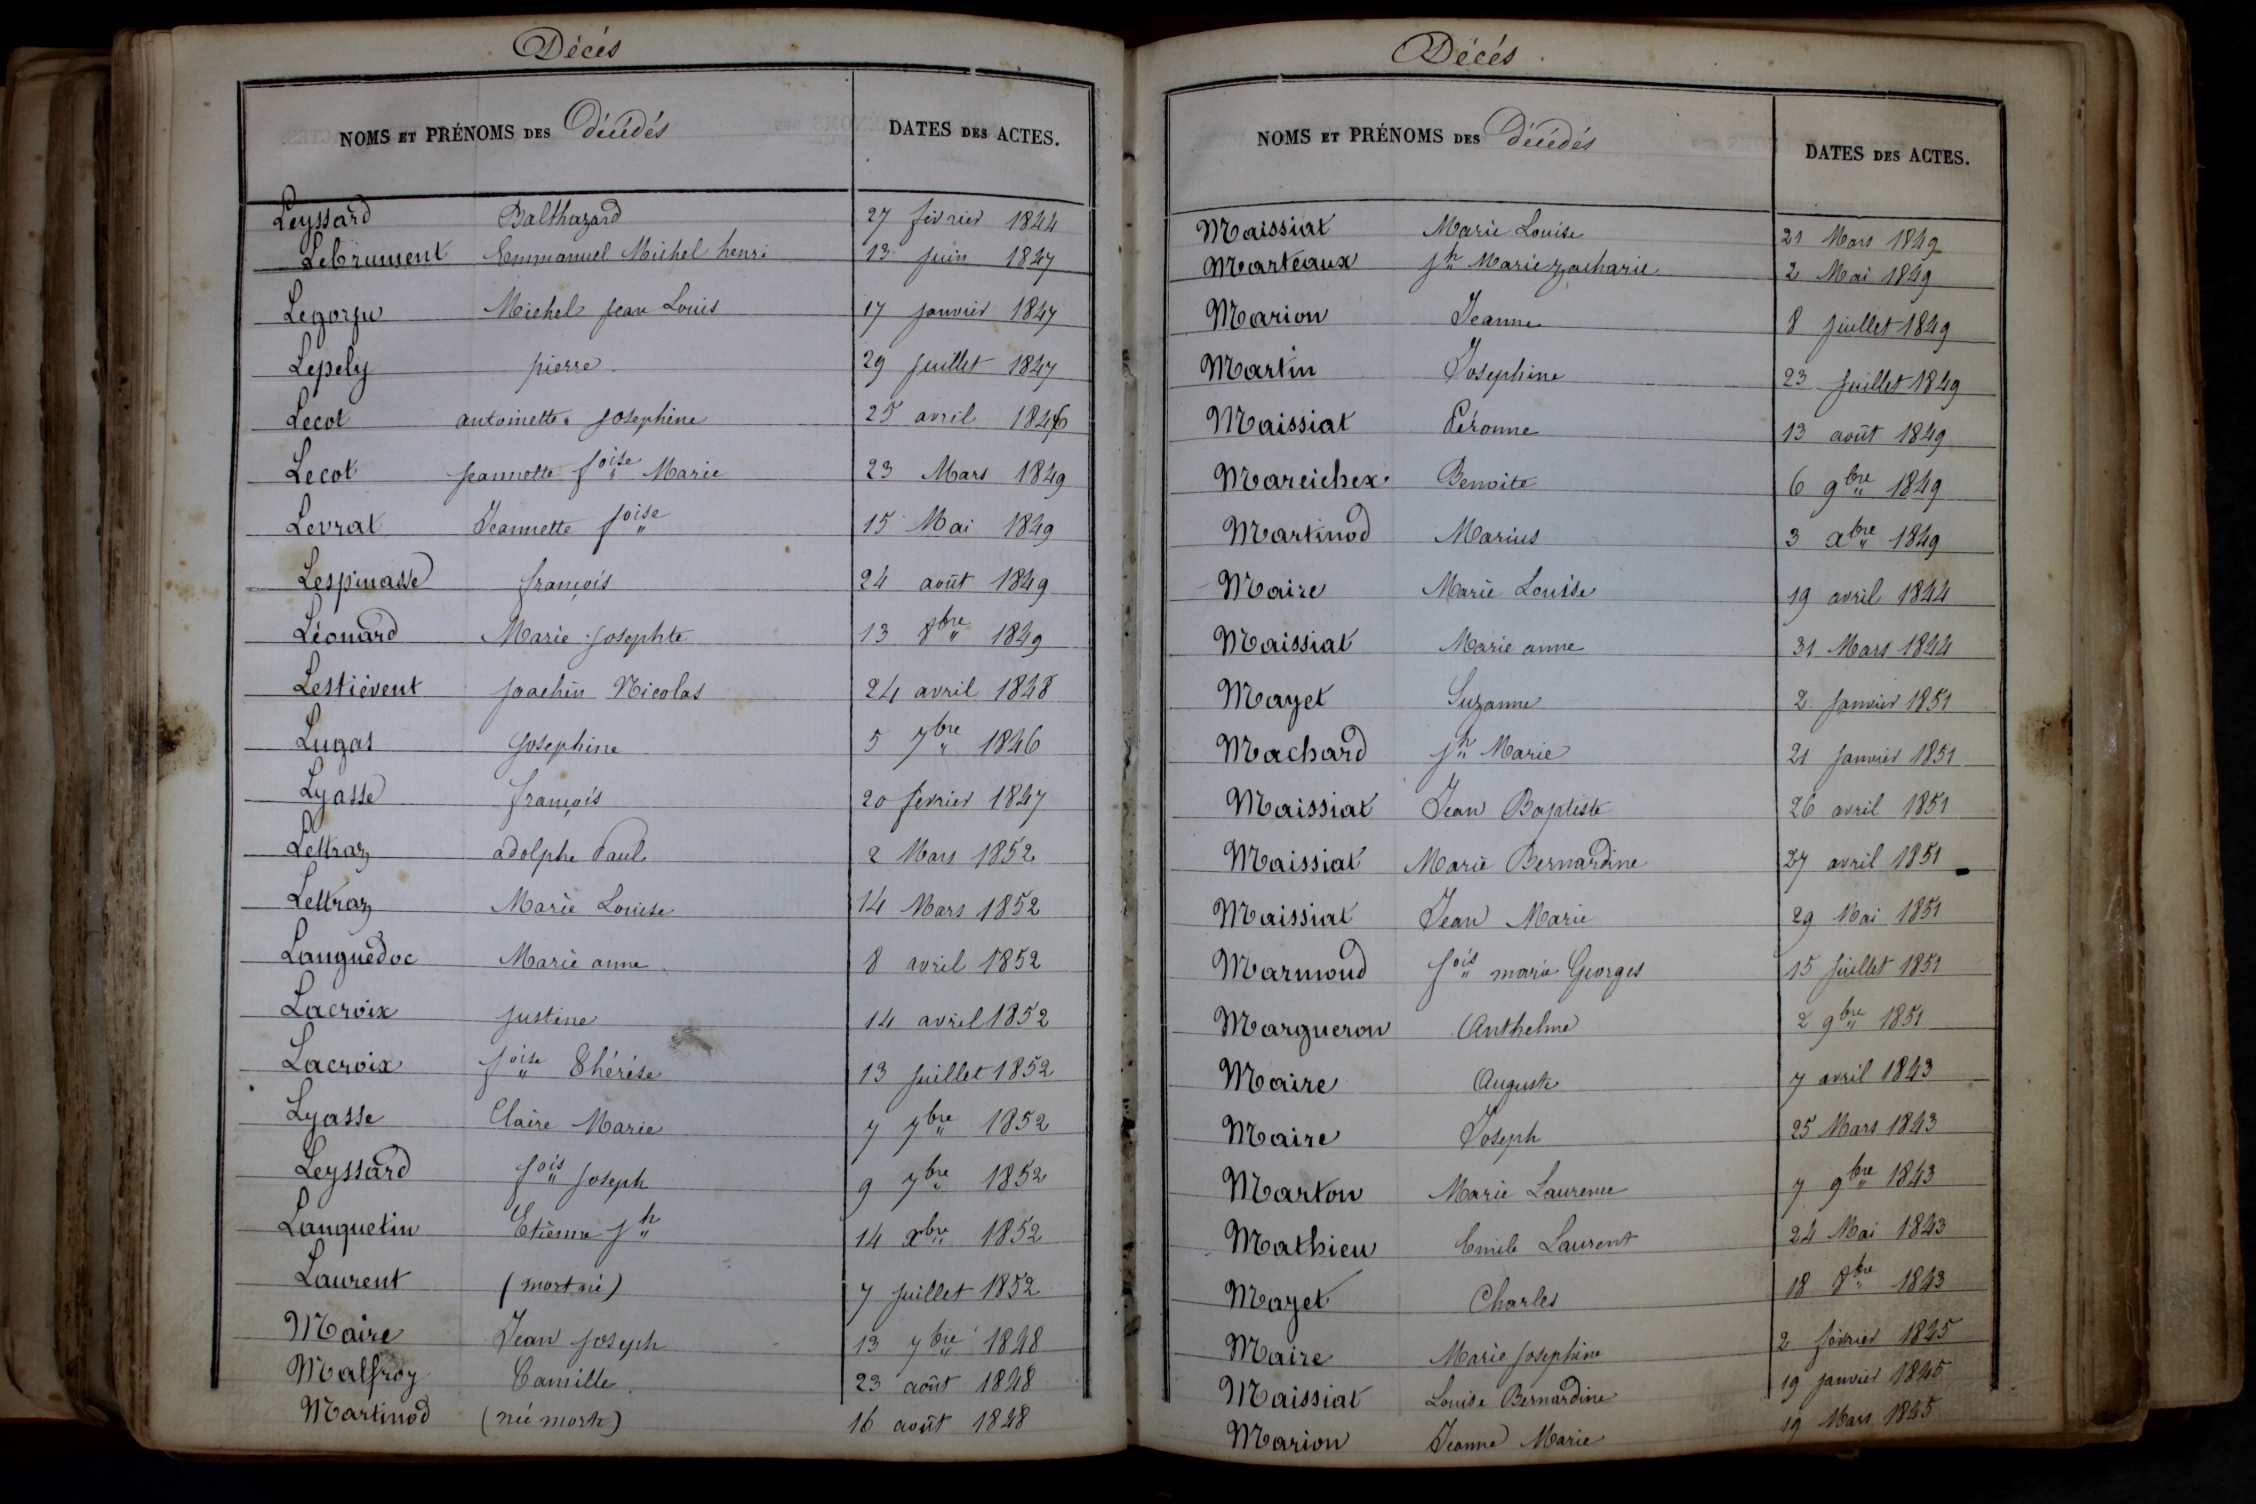 Décés
NOMS ET PRÉNOMS DES Décédés DATES DES ACTES.
Leyssard Balthazard 27 février 1844
Lebrument Emmanuel Michel henri 13 juin 1847
Legorju Michel Jean Louis 17 janvier 1847
Lepely pierre 29 juillet 1847
Lecot antoinette Josephine 25 avril 1846
Lecot Jeannette foise Marie 23 Mars 1849
Levrat Jeannette foise 15 Mai 1849
Lespinasse françois 24 août 1849
Léonard Marie Josephte 13 8bre 1849
Lestiévent Joachin Nicolas 24 avril 1848
Lugas Josephine 5 7bre 1846
Lyasse françois 20 fevrier 1847
Lettraz adolphe Paul 2 Mars 1852
Lettraz Marie Louise 14 Mars 1852
Languedoc Marie anne 8 avril 1852
Lacroix Justine 14 avril 1852
Lacroix foise Thérése 13 juillet 1852
Lyasse Claire Marie 7 7bre 1852
Leyssard fois Joseph 9 7bre 1852
Lanquetin Etienne Jh 14 xbre 1852
Laurent (mort né) 7 juillet 1852
Maire Jean Joseph 13 7bre 1848
Malfroy Camille 23 août 1848
Martinod (né morte) 16 août 1848
Décés
NOMS ET PRÉNOMS DES Décédés DATES DES ACTES.
Maissiat Marie Louise 21 Mars 1849
Marteaux Jh Marie Zacharie 2 Mai 1849
Marion Jeanne 8 juillet 1849
Martin Josephine 23 juillet 1849
Maissiat Péronne 13 août 1849
Mareichex Benoite 6 9bre 1849
Martinod Marius 3 xbre 1849
Maire Marie Louise 19 avril 1844
Maissiat Marie anne 31 Mars 1844
Mayet Suzanne 2 janvier 1851
Machard Jh Marie 21 janvier 1851
Maissiat Jean Baptiste 26 avril 1851
Maissiat Marie Bernardine 27 avril 1851
Maissiat Jean Marie 29 Mai 1851
Marmoud fois marie Georges 15 juillet 1851
Margueron Anthelme 2 9bre 1851
Maire Auguste 7 avril 1843
Maire Joseph 25 Mars 1843
Marton Marie Laurence 7 9bre 1843
Mathieu Emile Laurent 24 Mai 1843
Mayet Charles 18 8bre 1843
Maire Marie Josephine 2 février 1845
Maissiat Louise Bernardine 19 janvier 1845
Marion Jeanne Marie 19 Mars 1845